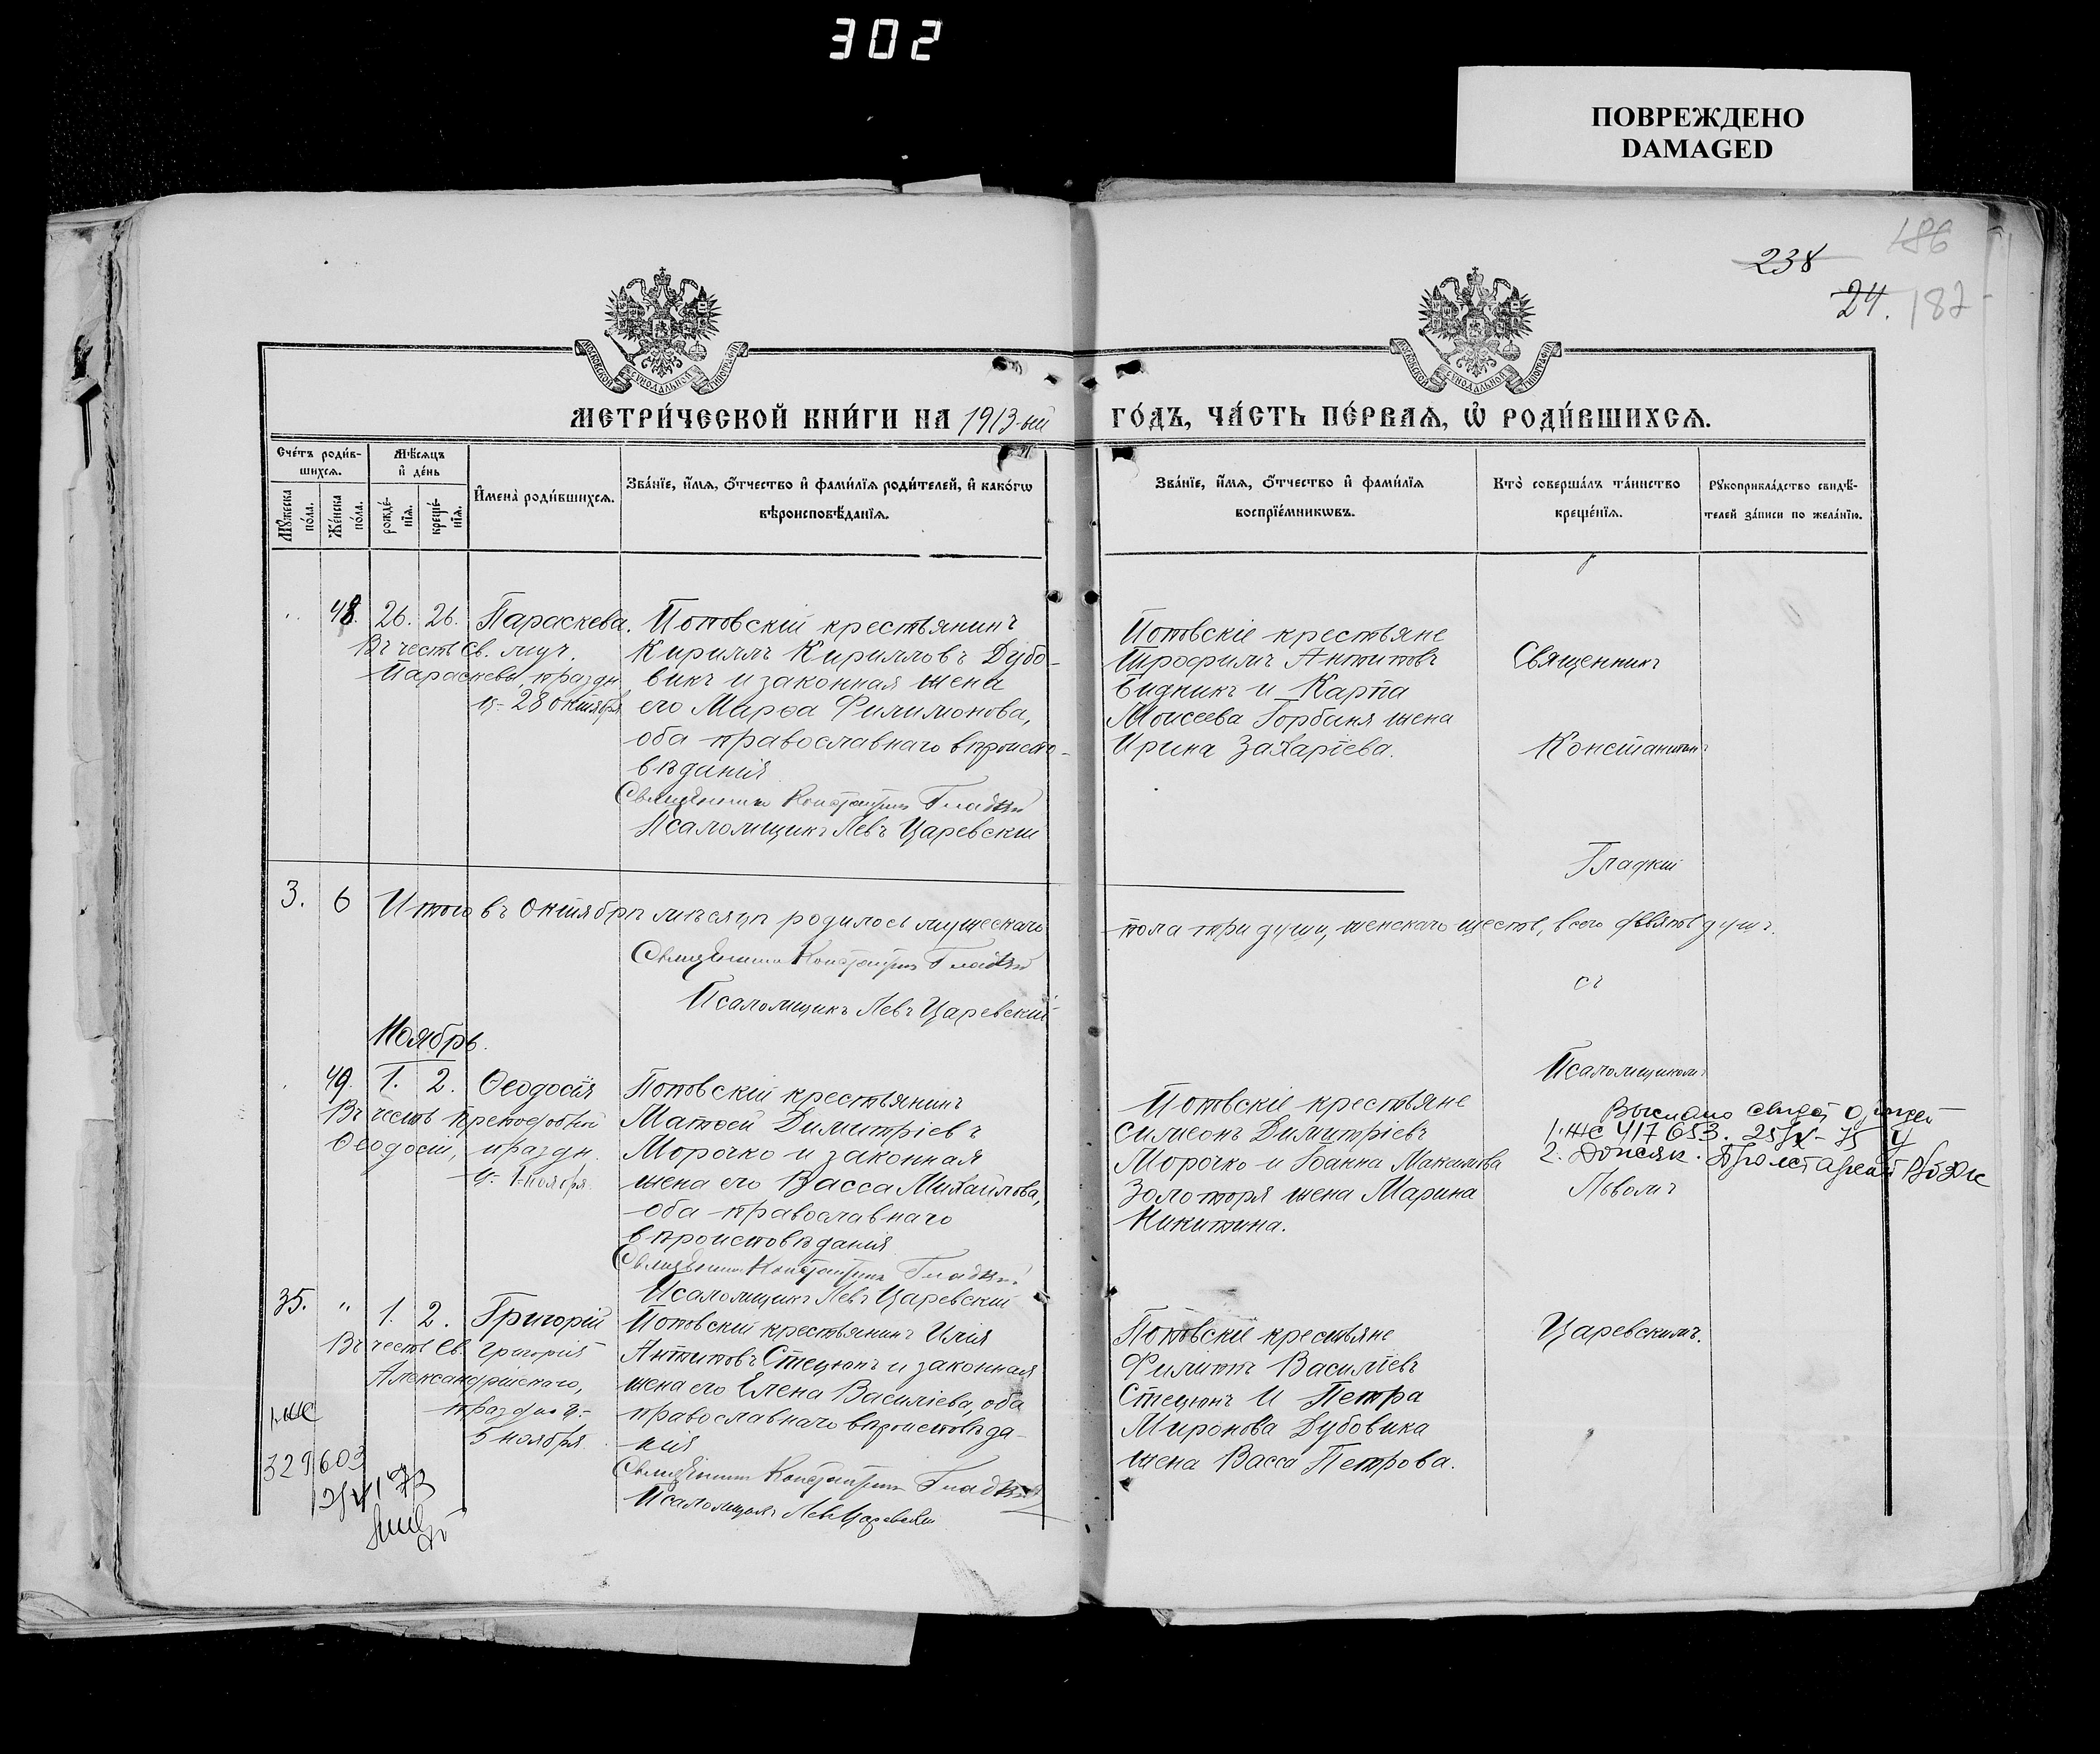 302
ПОВРЕЖДЕНО
DAMAGED
186
238
24. 187
МОСКОВСКОЙ СѴНОДАЛЬНОЙ ТИПОГРАФІИ
МОСКОВСКОЙ СѴНОДАЛЬНОЙ ТИПОГРАФІИ
МЕТРИ́ЧЕСКОЙ КНИ́ГИ НА 1913-ый
ГО́ДЪ, ЧА́СТЬ ПЕ́РВАѦ, Ѽ РОДИ́ВШИХСѦ.
Сче́тъ роди́в-
шихсѧ.
Мꙋ́жеска
по́ла.
Же́нска
по́ла.
Мѣ́сѧцъ
и҆ де́нь
рожде́-
нїѧ.
креще́-
нїѧ.
И҆мена̀ роди́вшихсѧ.
Зва́нїе, и҆́мѧ, ѻ҆́тчество и҆ фами́лїѧ роди́телей, и҆ како́гѡ
вѣроисповѣ́данїѧ.
Зва́нїе, и҆́мѧ, ѻ҆́тчество и҆ фами́лїѧ
воспрїе́мникѡвъ.
Кто̀ соверша́лъ та́инство
креще́нїѧ.
Рꙋкоприкла́дство свидѣ́-
телей за́писи по жела́нїю.
48. 26. 26. Параскева.
Въ честь Св. муч.
Параскевы, праздн.
28 октября
Потовскій крестьянинъ
Кириллъ Кирилловъ Дубо-
викъ и законная жена
его Марѳа Филимонова,
оба православнаго вѣроиспо-
вѣданія
Священникъ Константинъ Гладкій
Псаломщикъ Левъ Царевскій
Потовскіе крестьяне
Трофимъ Антиповъ
Бидникъ и Карпа
Моисеева Горбаня жена
Ирина Захаріева.
Священникъ
Константинъ
Гладкій
3. 6 Итого въ Октябрѣ мѣсяцѣ родилось мужескаго
пола три души, женскаго шесть, всего девять душъ.
Священникъ Константинъ Гладкій
Псаломщикъ Левъ Царевскій
съ
Ноябрь.
49. 1. 2. Ѳеодосія
Въ честь преподобной
Ѳеодосіи, праздн.
1 ноября.
Потовскій крестьянинъ
Матѳей Димитріевъ
Морочко и законная
жена его Васса Михайлова,
оба православнаго
вѣроисповѣданія
Священникъ Константинъ Гладкій
Псаломщикъ Левъ Царевскій
Потовскіе крестьяне
Симеонъ Димитріевъ
Морочко и Іоанна Максимова
Золотаря жена Марина
Никитина.
Псаломщикомъ
Выслано свидет о рожден
1. ЖС 417653. 25/IX-75
2.
Львомъ
35. " 1. 2. Григорій
Въ честь Св. Григорія
Александрійскаго,
праздн.
5 ноября.
Потовскій крестьянинъ Илія
Антиповъ Стецюнъ и законная
жена его Елена Василіева, оба
православнаго вѣроисповѣда-
нія
Священникъ Константинъ Гладкій
Псаломщикъ Левъ Царевскій
Потовскіе крестьяне
Филиппъ Василіевъ
Стецюнъ и Петра
Миронова Дубовика
жена Васса Петрова.
Царевскимъ.
329603